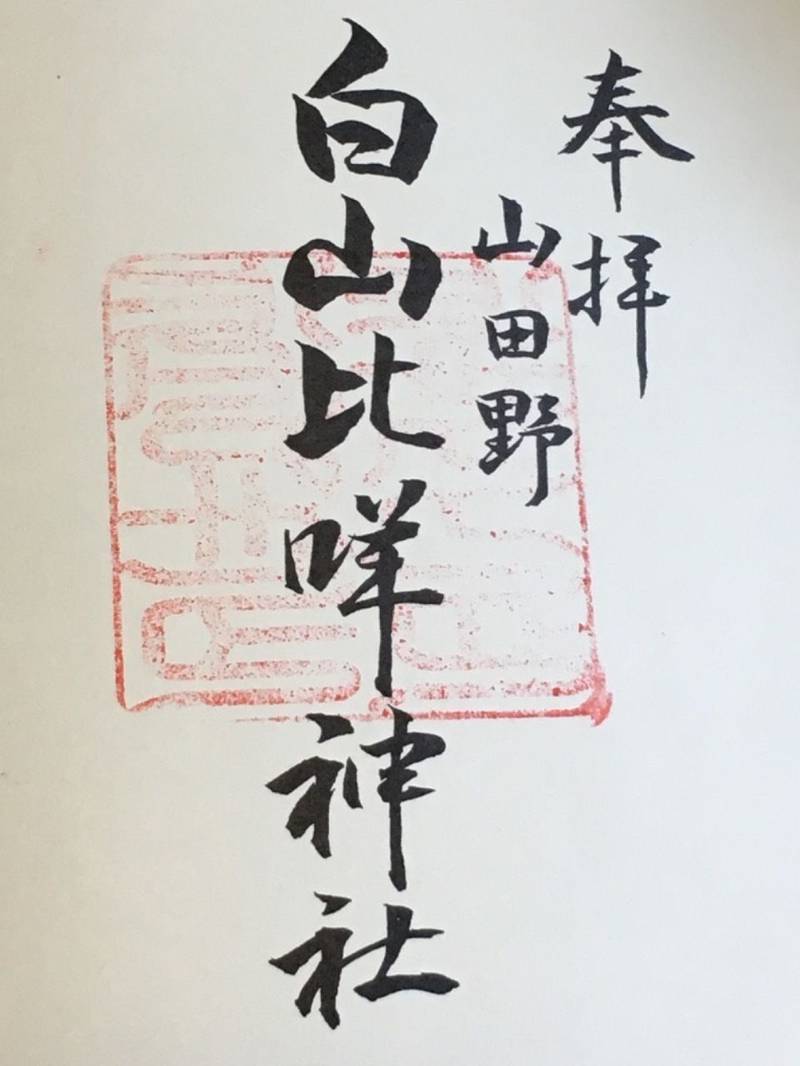 奉拝
山田野
白山比咩神社